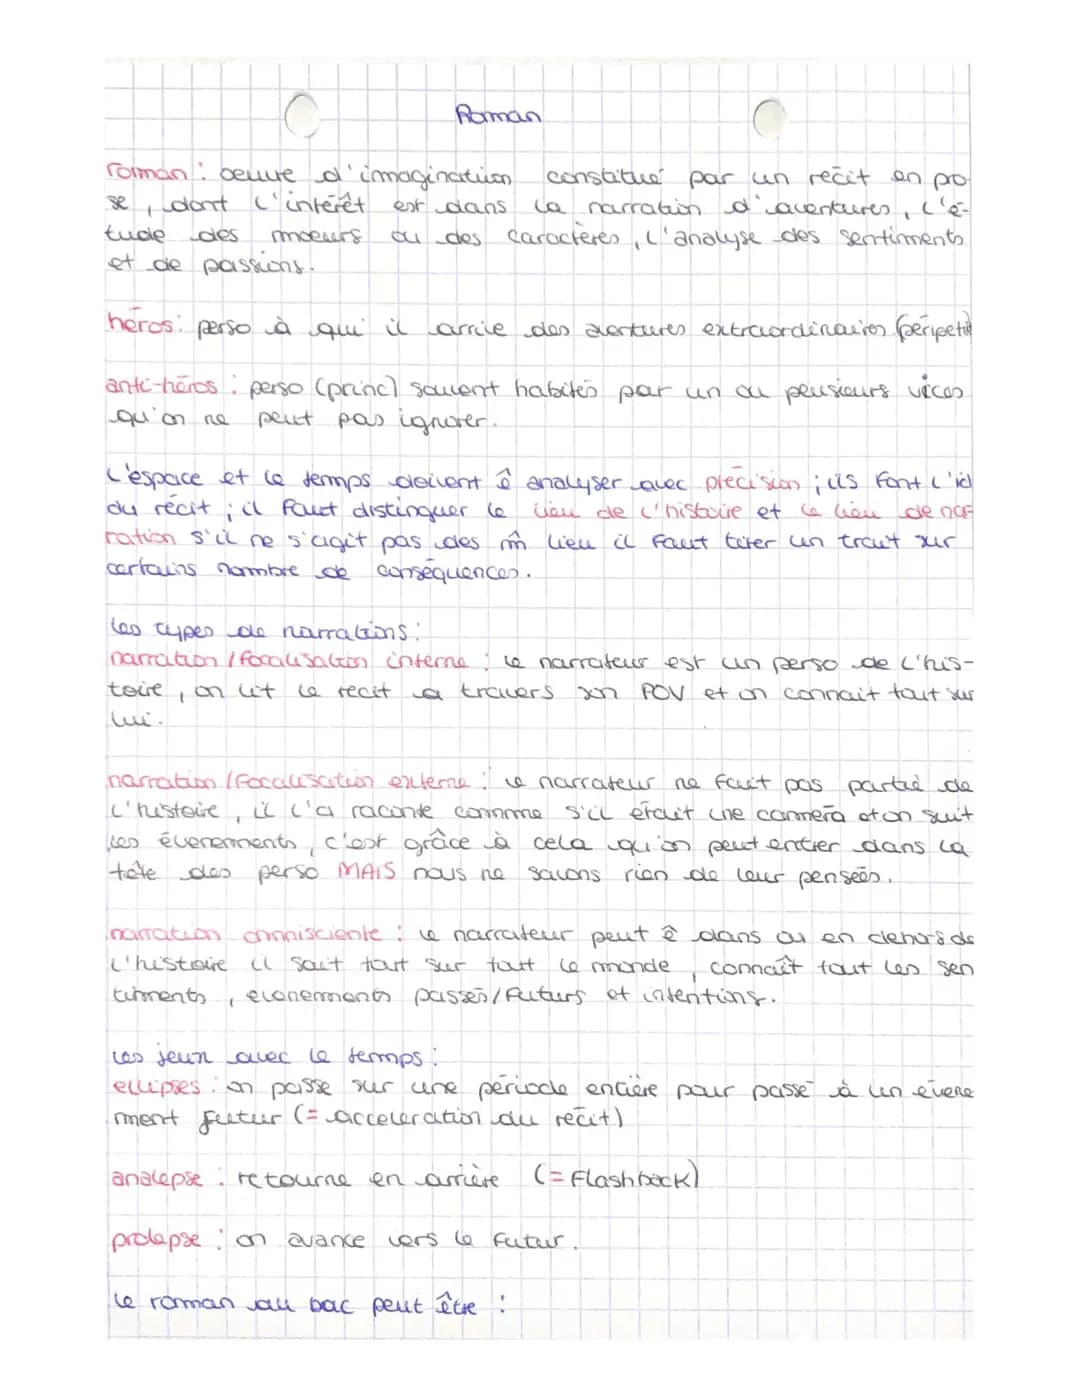 Roman
roman : oeuvre d'immagination constitué par un récit en pro
se, dont l'intérêt est dans la narration d'aventures, l'é-
tude des moeurs ou des caractères, l'analyse des sentiments
et de passions.
héros : perso à qui il arrive des aventures extraordinaires (péripéti
anti-héros : perso (princ) souvent habités par un ou plusieurs vices
qu'on ne peut pas ignorer.
L'espace et le temps doivent ê analyser avec précision ; ils font l'id
du récit ; il faut distinguer le lieu de l'histoire et le lieu de nar
ration s'il ne s'agit pas des m̂ lieu il faut tirer un trait sur
certains nombre de conséquences.
les types de narrations :
narration / focalisation interne : le narrateur est un perso de l'his-
toire, on lit le recit a travers son POV et on connait tout sur
lui.
narration / focalisation externe : le narrateur ne fait pas partie de
l'histoire, il l'a raconte comme s'il était une caméra et on suit
les évenements, c'est grâce à cela qu'on peut entrer dans la
tête des perso MAIS nous ne savons rien de leur pensées.
narration omnisciente : le narrateur peut ê dans ou en dehors de
l'histoire il sait tout sur tout le monde, connaît tout les sen
timents, evenements passés/futurs et intentions.
Les jeux avec le temps :
ellipses : on passe sur une période entière pour passé à un évene
ment futur (= acceleration du récit)
analepse : retourne en arrière (= Flashback)
prolepse : on avance vers le futur.
Le roman au bac peut être :